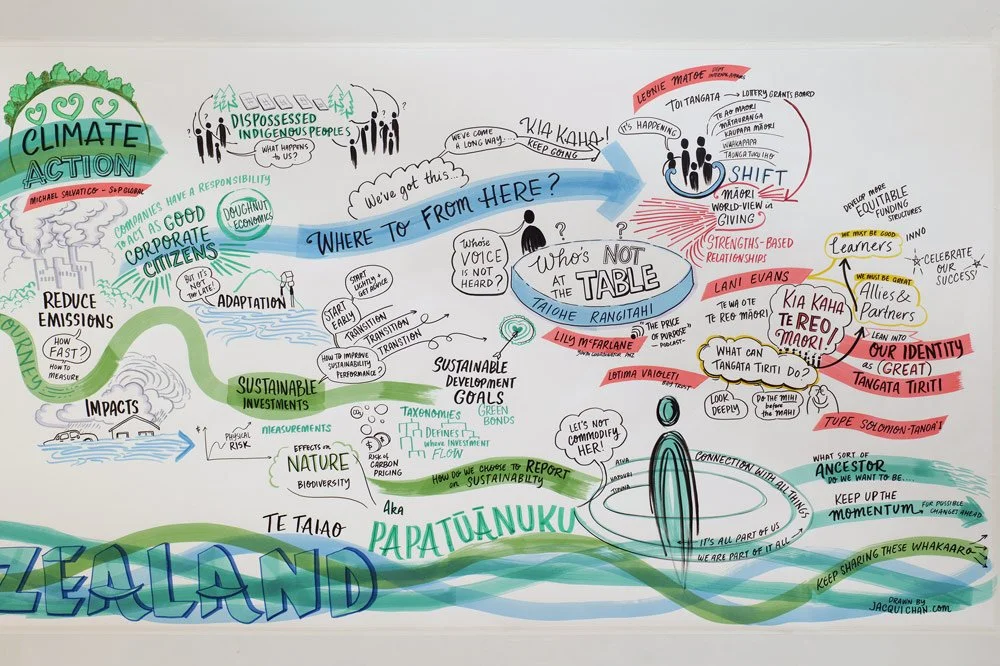 CLIMATE
ACTION
MICHAEL SALVATICO - S+P GLOBAL
COMPANIES HAVE A RESPONSIBILITY
TO ACT AS GOOD
CORPORATE
CITIZENS
DOUGHNUT
ECONOMICS
REDUCE
EMISSIONS
HOW
FAST?
HOW TO
MEASURE
BUT IT'S
NOT
TOO LATE!
ADAPTATION
OURNEY
IMPACTS
PHYSICAL
RISK
MEASUREMENTS
DISPOSSESSED
INDIGENOUS PEOPLES
WHAT HAPPENS
TO US?
?
?
WE'VE COME
A LONG WAY...
KIA KAHA!
KEEP GOING
We've got this...
WHERE TO FROM HERE?
START
LIGHTLY +
GET ADVICE
START
EARLY
TRANSITION
TRANSITION
TRANSTION
HOW TO IMPROVE
SUSTAINABILITY
PERFORMANCE?
SUSTAINABLE
INVESTMENTS
SUSTAINABLE
DEVELOPMENT
GOALS
TAXONOMIES
GREEN
BONDS
DEFINES
where INVESTMENT
FLOW
RISK OF
CARBON
PRICING
EFFECTS ON
NATURE
BIODIVERSITY
HOW DO WE CHOOSE TO REPORT
on SUSTAINABILITY
Whose
VOICE
IS NOT
HEARD?
?
?
Who's NOT
AT THE TABLE
TAIOHI RANGITAHI
LILY McFARLANE
THE PRICE
OF PURPOSE
- PODCAST -
LEONIE MATOE
TOI TANGATA
LOTTERY GRANTS BOARD
IT'S HAPPENING
TE AO MĀORI
MĀTAURANGA
KAUPAPA MĀORI
WHAKAPAPA
TAONGA TUKU IHO
SHIFT
MĀORI
WORLD-VIEW in
GIVING
STRENGTHS-BASED
RELATIONSHIPS
DEVELOP MORE
EQUITABLE
FUNDING
STRUCTURES
WE MUST BE GOOD
Learners
INNO
CELEBRATE
OUR
SUCCESS!
LANI EVANS
TE WA O TE
TE REO MĀORI
KIA KAHA
TE REO
MAORI!
WE MUST BE GREAT
Allies &
Partners
LEAN INTO
OUR IDENTITY
as (GREAT)
TANGATA TIRITI
LOTIMA VAIOLETI
WHAT CAN
TANGATA TIRITI DO?
LOOK
DEEPLY
DO THE MIHI
before
the MAHI
TUPE SOLOMON-TANOA'I
LET'S NOT
COMMODIFY
HER!
CONNECTION WITH ALL THINGS
IT'S ALL PART OF US
WE ARE PART OF IT ALL
WHAT SORT OF
ANCESTOR
DO WE WANT TO BE....
KEEP UP THE
MOMENTUM
FOR POSSIBLE
CHANGES AHEAD
KEEP SHARING THESE WHAKAARO
TE TAIAO
Aka
PAPATŪĀNUKU
ZEALAND
DRAWN BY
JACQUICHAN.com